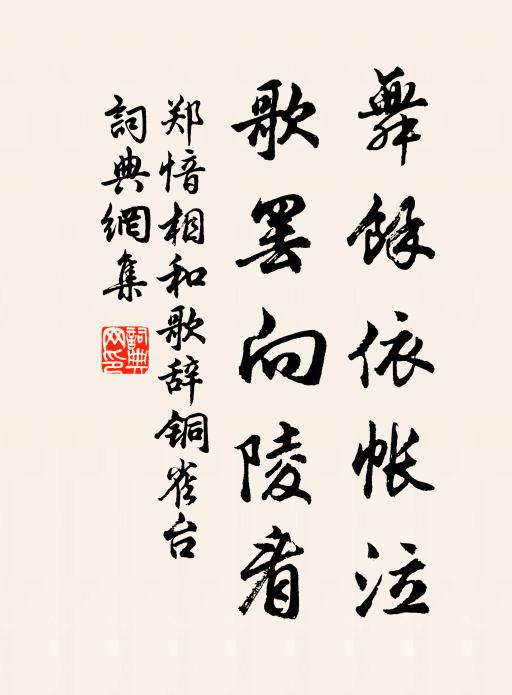 舞馀依帐泣
歌罢向陵看
郑愔相和歌辞铜雀台
詞典網集
詞典网印